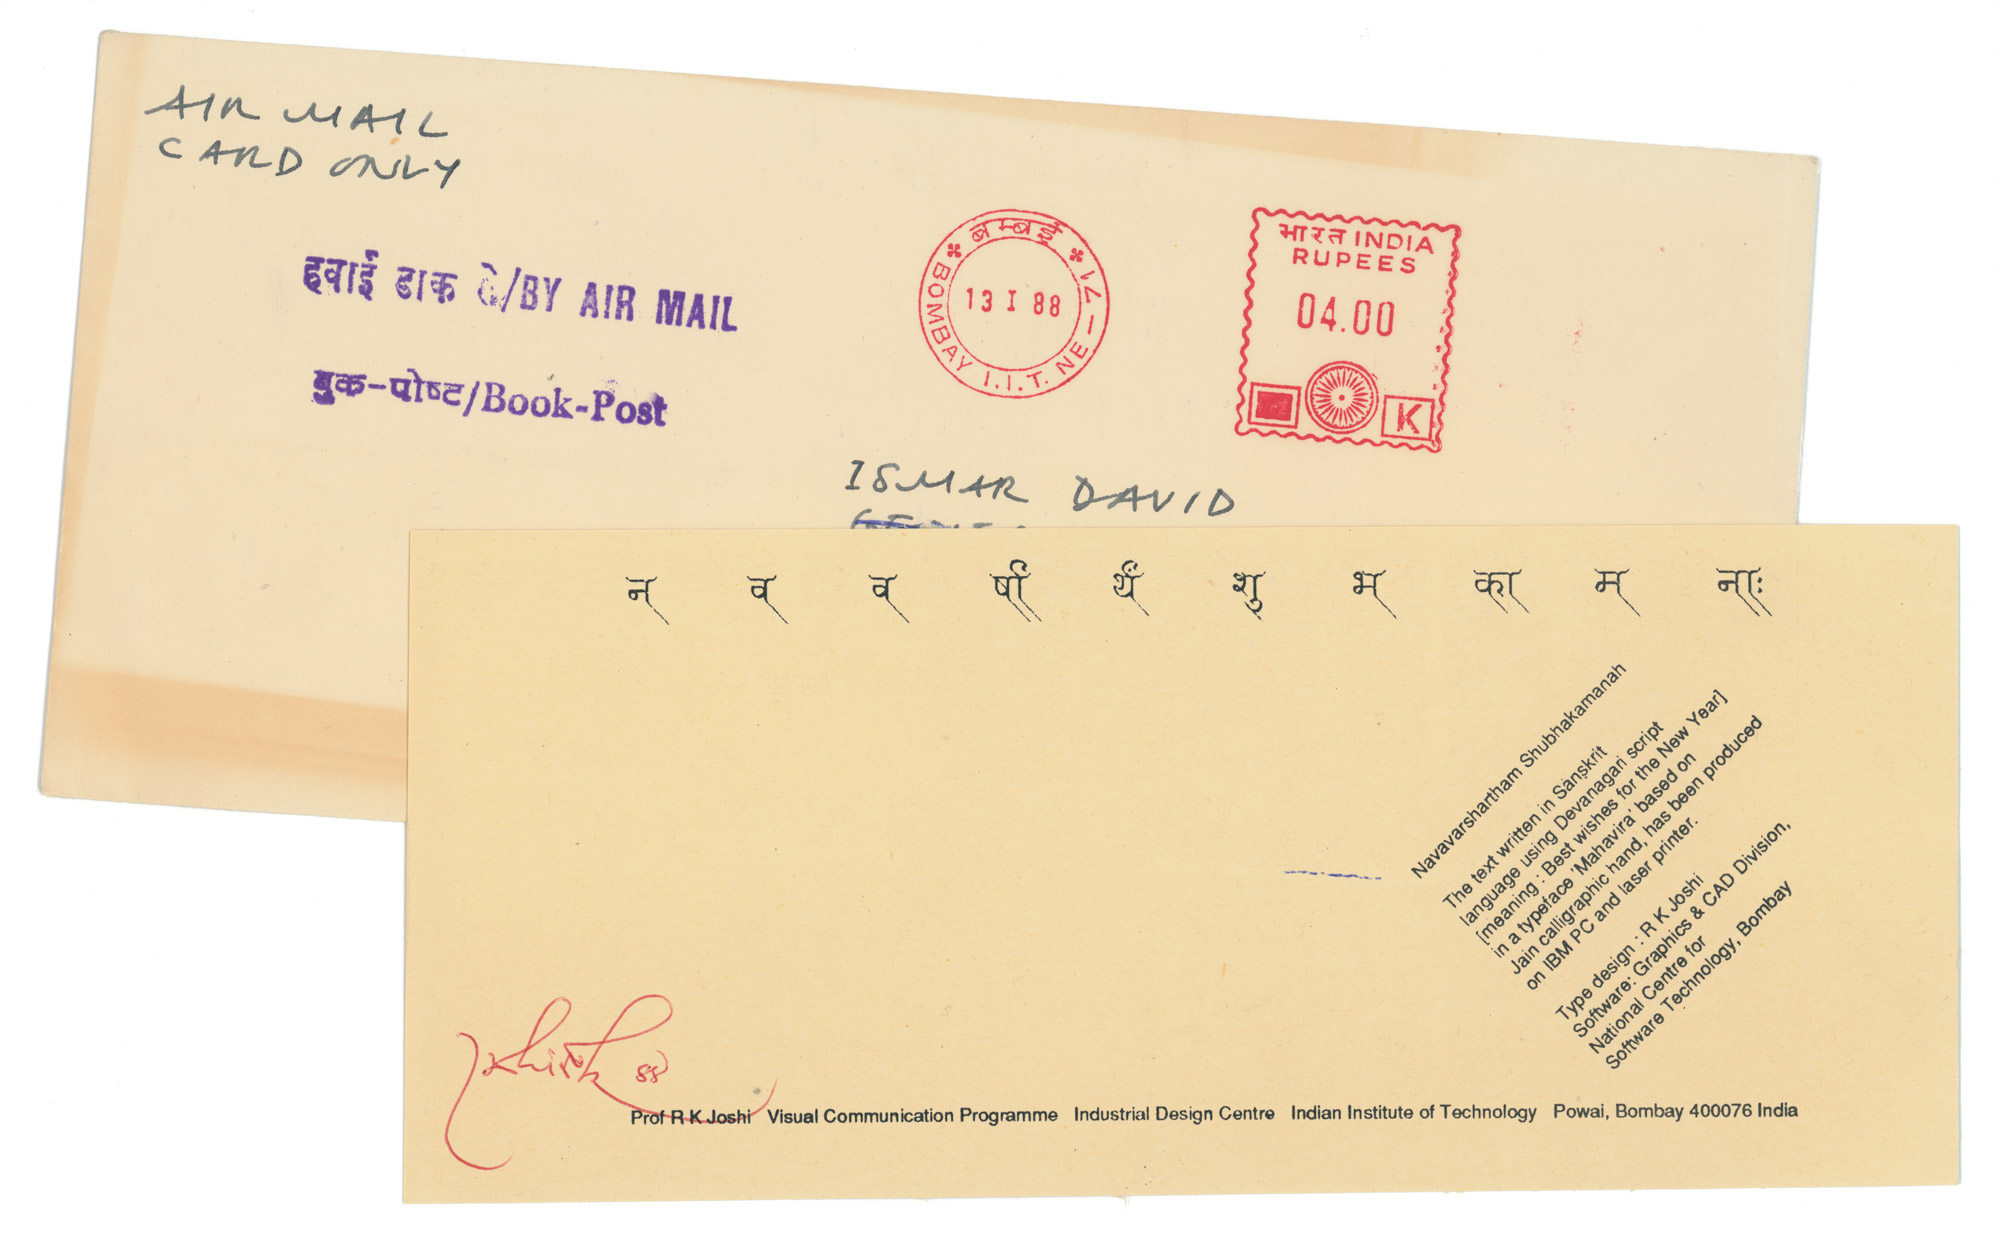 AIR MAIL
CARD ONLY
हवाई डाक से/BY AIR MAIL
बुक-पोष्ट/Book-Post
बम्बई
BOMBAY I.I.T. NE-71
13 I 88
भारत INDIA
RUPEES
04.00
K
ISMAR DAVID
न व व र्षा र्थं शु भ का म नाः
Navavarshartham Shubhakamanah
The text written in Sanskrit
language using Devanagari script
[meaning : Best wishes for the New Year]
in a typeface 'Mahavira' based on
Jain calligraphic hand, has been produced
on IBM PC and laser printer.
Type design : R K Joshi
Software: Graphics & CAD Division,
National Centre for
Software Technology, Bombay
88
Prof R K Joshi Visual Communication Programme Industrial Design Centre Indian Institute of Technology Powai, Bombay 400076 India